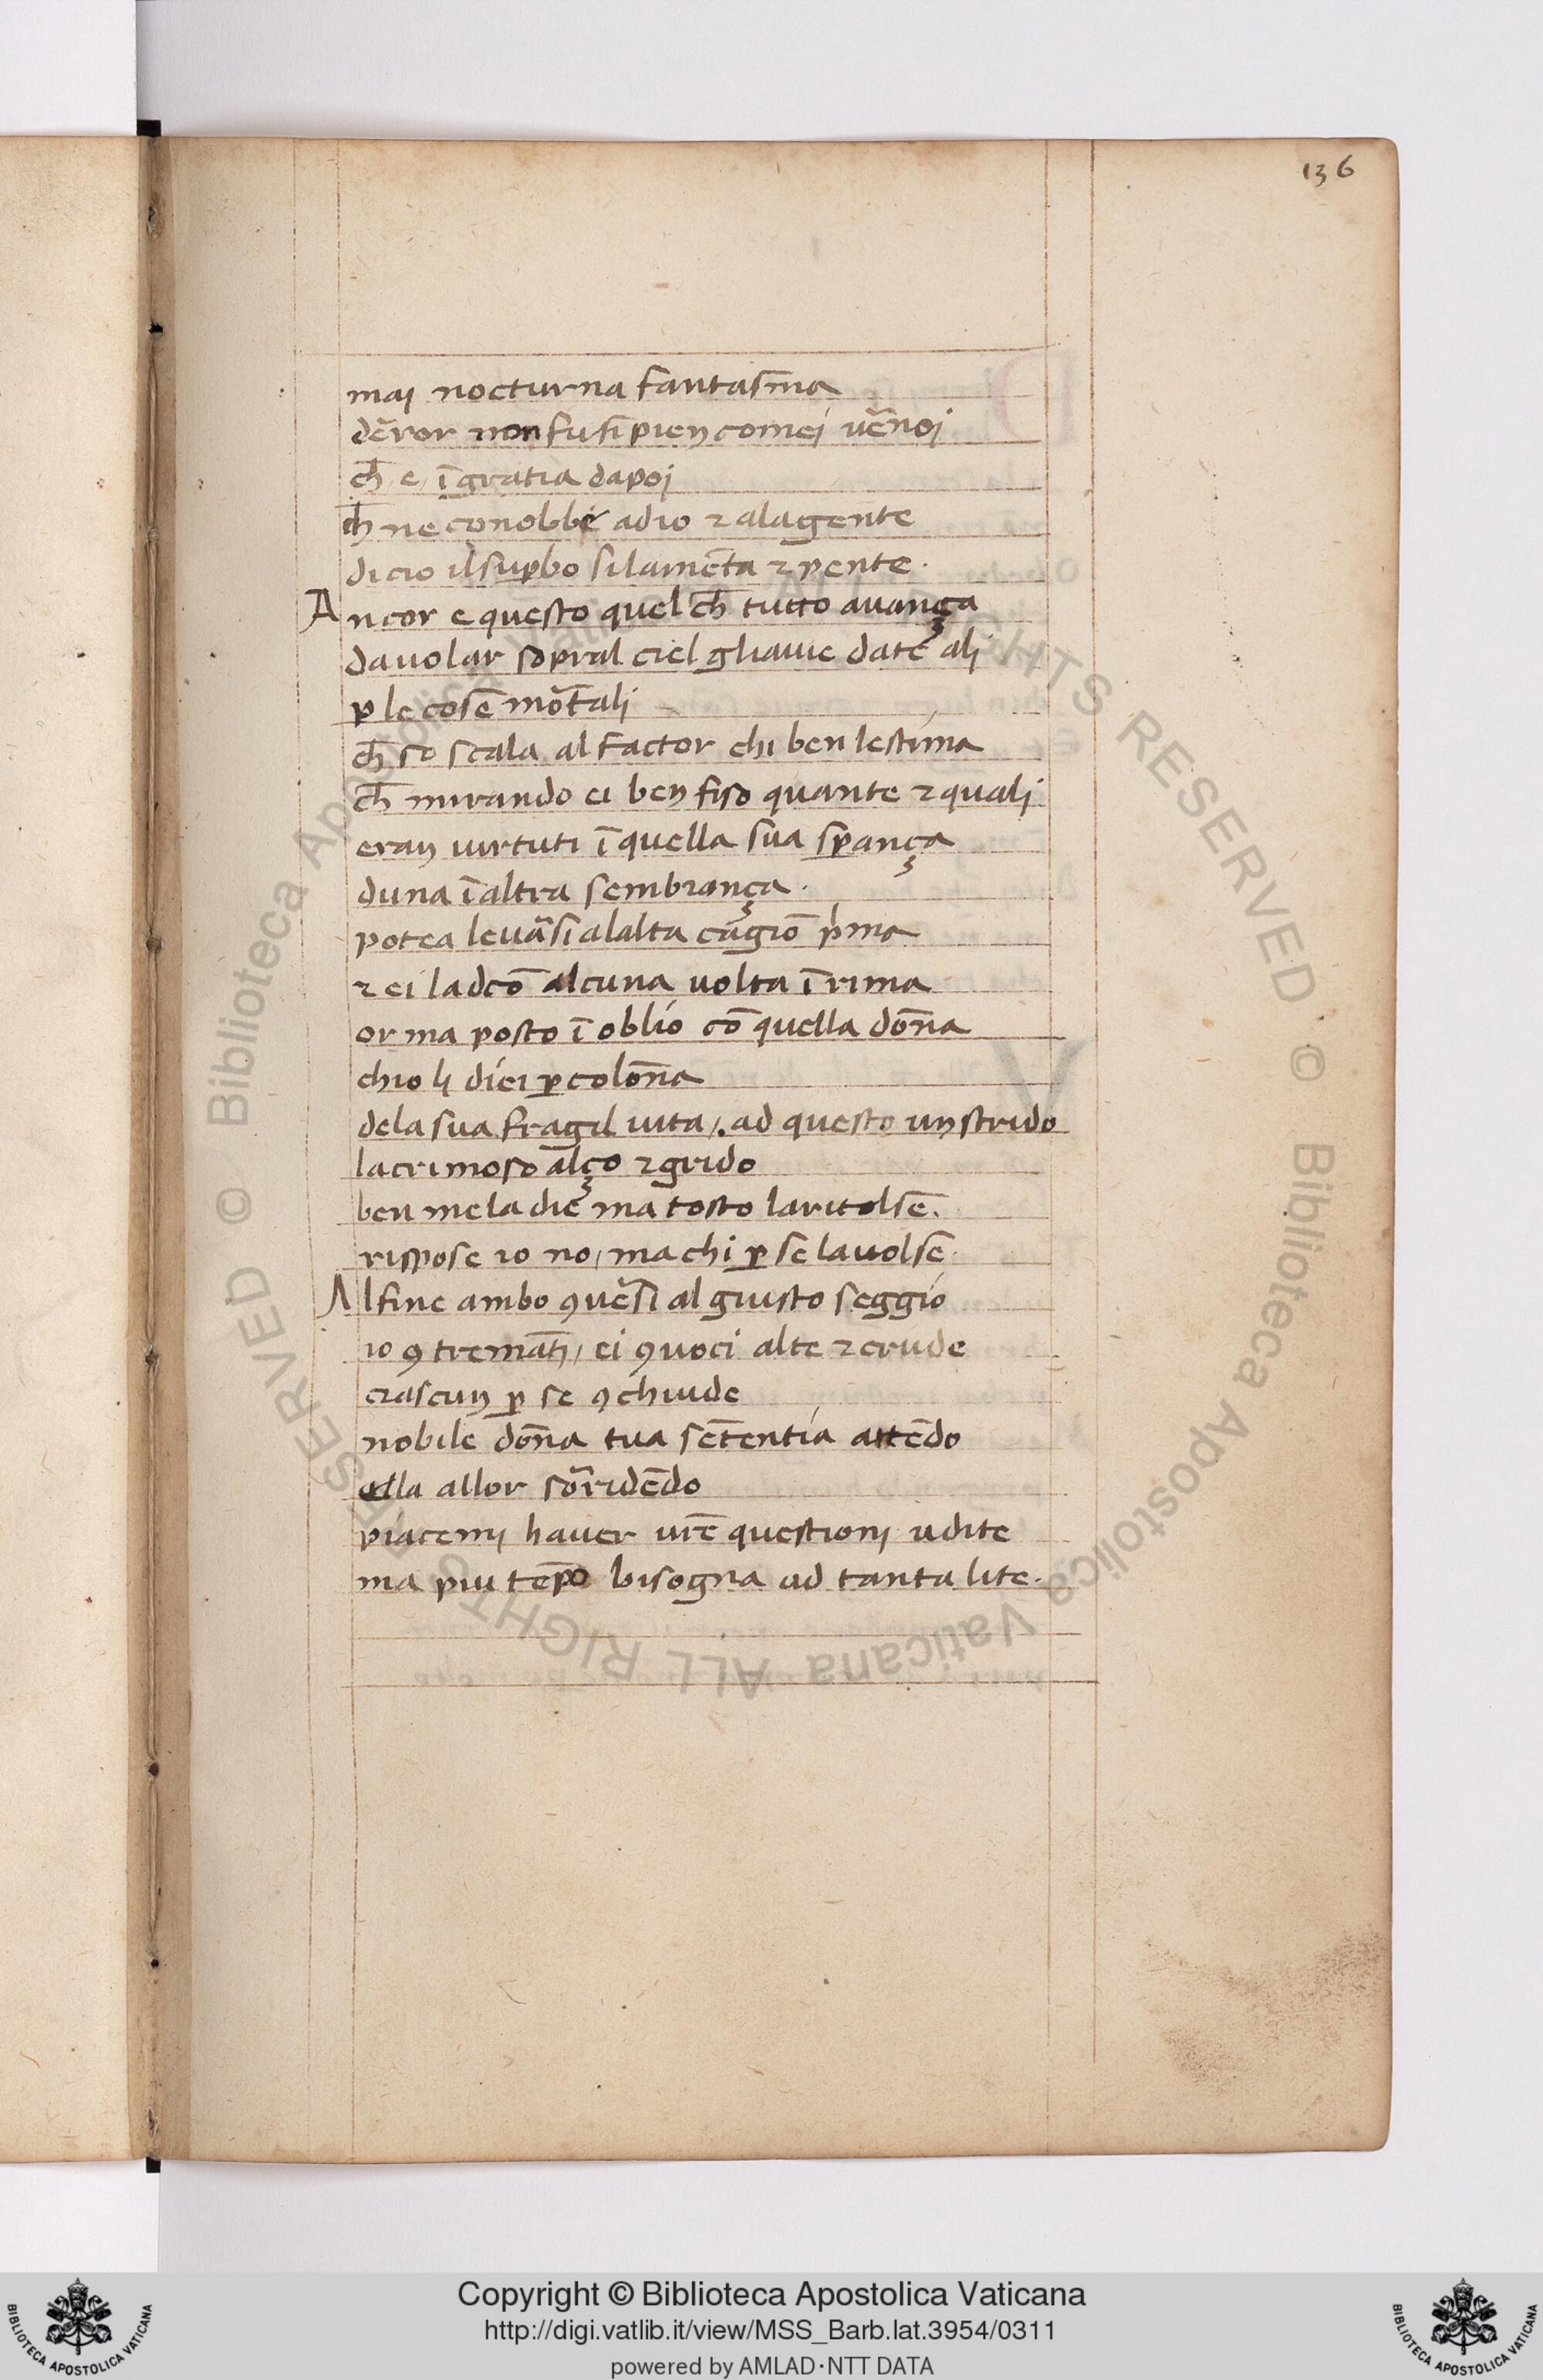 136
maj nocturna fantasm̄a
dēror non fu si pien comei ūe noj
ch̄ e īgratia dapoj
ch̄ ne conobbe adio ⁊ alagente
dicio il suꝑbo si lamēta ⁊ pente.
Ancor e questo quel ch̄ tutto auança
da uolar sopral ciel gliaue date ali
ꝑ le cose mōrtali
ch̄ so scala al factor chi ben lestima
ch̄ mirando ei ben fiso quante ⁊ quali
eran uirtuti ī quella sua sꝑança
duna ī altra sembrança.
potea leuārsi alalta cagiō pͥma
⁊ ei lad cō alcuna uolta ī rima
or ma posto ī oblio cō quella don̄a
chio li diei ꝑ colon̄a
dela sua fragil uita /. ad questo un strido
lacrimoso alço ⁊ grido
ben mela die ma tosto la ritolse.
rispose io no / ma chi ꝑ se la uolse.
Al fine ambo ꝯuersi al giusto seggio
io ꝯ tremāti / ei ꝯ uoci alte ⁊ crude
ciascun ꝑ se ꝯchiude
nobile don̄a tua sētentia attēdo
ella allor sōrridēdo
piacemi hauer ur̄e questionj udite
ma piu tēpo bisogna ad tanta lite.
© Biblioteca Apostolica Vaticana ALL RIGHTS RESERVED
© Biblioteca Apostolica Vaticana ALL RIGHTS RESERVED
Copyright © Biblioteca Apostolica Vaticana
http://digi.vatlib.it/view/MSS_Barb.lat.3954/0311
powered by AMLAD·NTT DATA
BIBLIOTECA APOSTOLICA VATICANA
BIBLIOTECA APOSTOLICA VATICANA